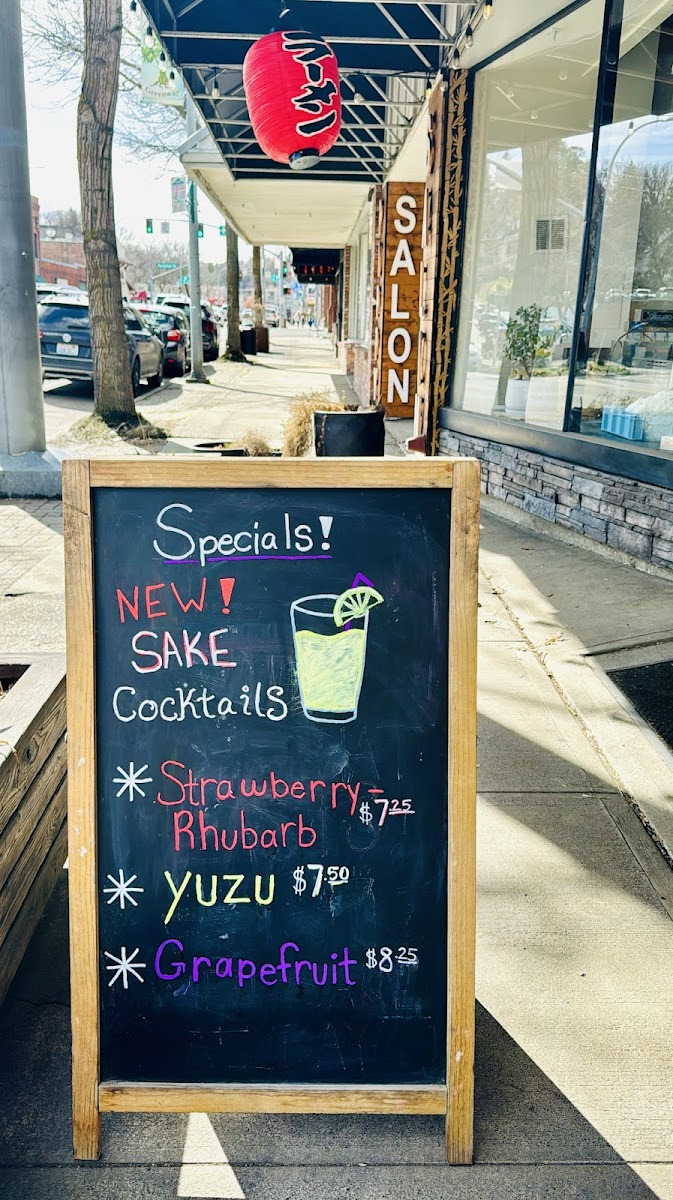 らーめん
SALON
Specials!
NEW!
SAKE
Cocktails
* Strawberry-
Rhubarb $7.25
* YUZU $7.50
* Grapefruit $8.25